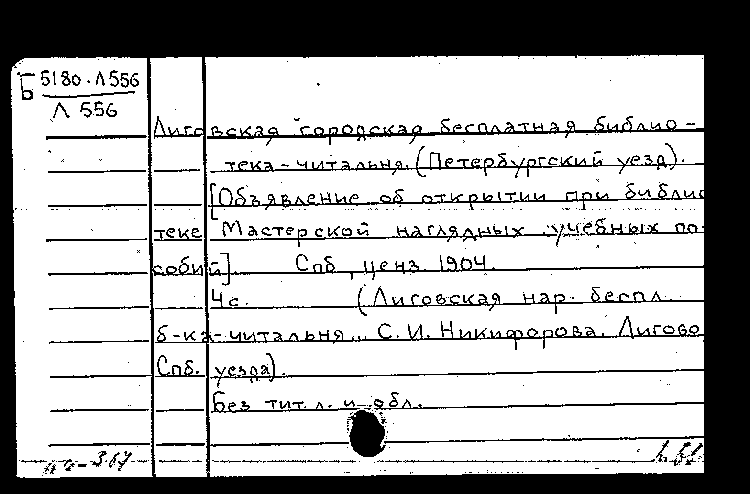 Б 5180·Л556
Л 556
Лиговская городская бесплатная библио-
тека-читальня (Петербургский уезд).
[Объявление об открытии при библио
теке Мастерской наглядных учебных по-
собий]. Спб, ценз. 1904.
4с. (Лиговская нар. беспл.
б-ка-читальня С. И. Никифорова. Лигово,
Спб. уезда).
Без тит. л. и обл.